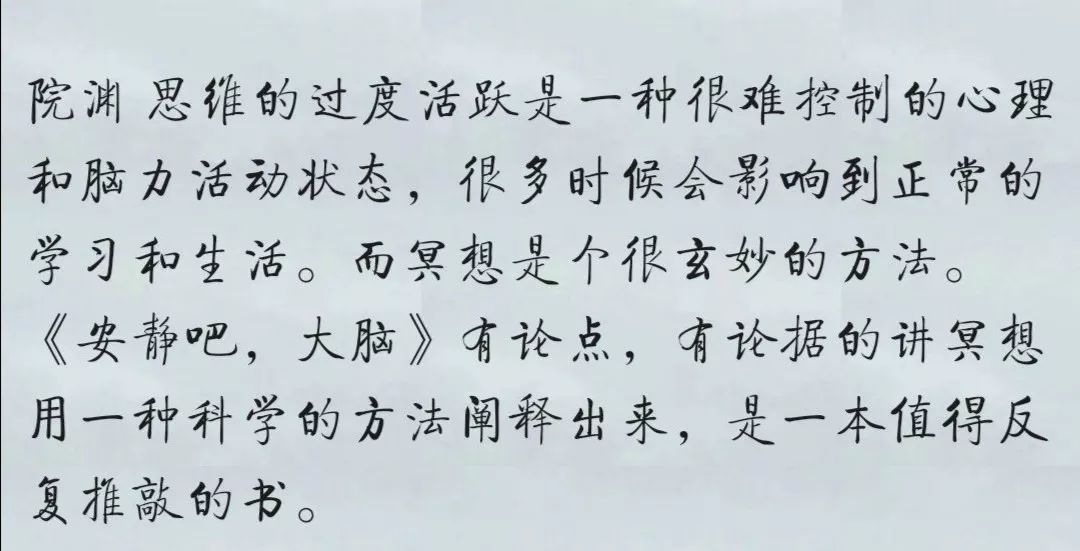 院渊 思维的过度活跃是一种很难控制的心理
和脑力活动状态，很多时候会影响到正常的
学习和生活。而冥想是个很玄妙的方法。
《安静吧，大脑》有论点，有论据的讲冥想
用一种科学的方法阐释出来，是一本值得反
复推敲的书。